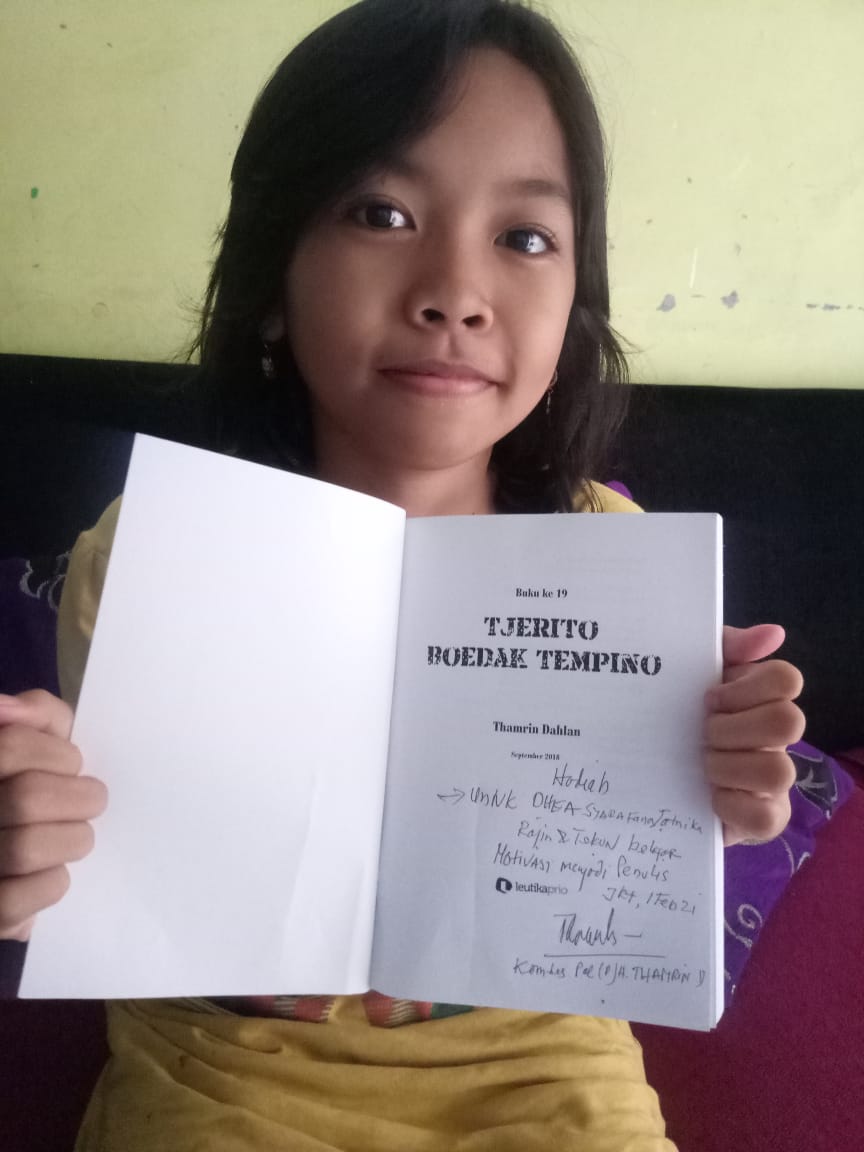 Buku ke 19
TJERITO
BOEDAK TEMPINO
Thamrin Dahlan
September 2018
Hadiah
→ UNTUK DHEA SYARAFANA
Rajin & TEKUN belajar
MOTIVASI menjadi Penulis
leutikaprio
JKT, 1 FEB 21
Kombes Pol (P) H. THAMRIN D